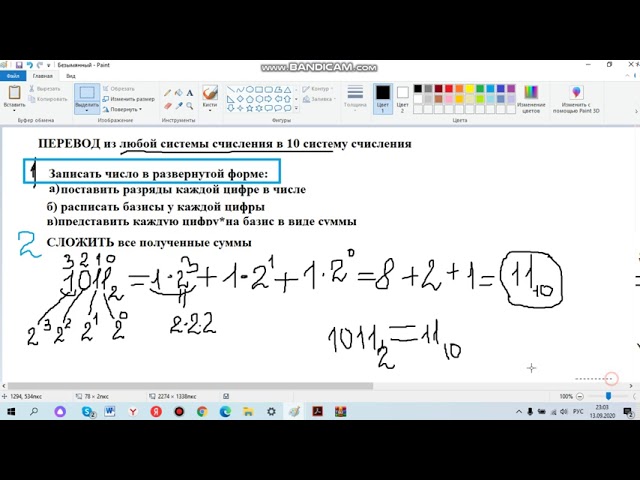 www.BANDICAM.com
Безымянный - Paint
Файл Главная Вид
Вставить Вырезать Копировать Выделить Обрезать Изменить размер Повернуть Кисти Контур Заливка Толщина Цвет 1 Цвет 2 Изменение цветов Изменить с помощью Paint 3D
Буфер обмена Изображение Инструменты Фигуры Цвета
ПЕРЕВОД из любой системы счисления в 10 систему счисления
1 Записать число в развернутой форме:
а)поставить разряды каждой цифре в числе
б) расписать базисы у каждой цифры
в)представить каждую цифру*на базис в виде суммы
2 СЛОЖИТЬ все полученные суммы
3 2 1 0
1011₂ = 1·2³ + 1·2¹ + 1·2⁰ = 8 + 2 + 1 = 11₁₀
2³ 2² 2¹ 2⁰ 2·2·2
1011₂ = 11₁₀
1294, 534пкс 78 × 2пкс 2274 × 1338пкс 100%
РУС 23:03
13.09.2020